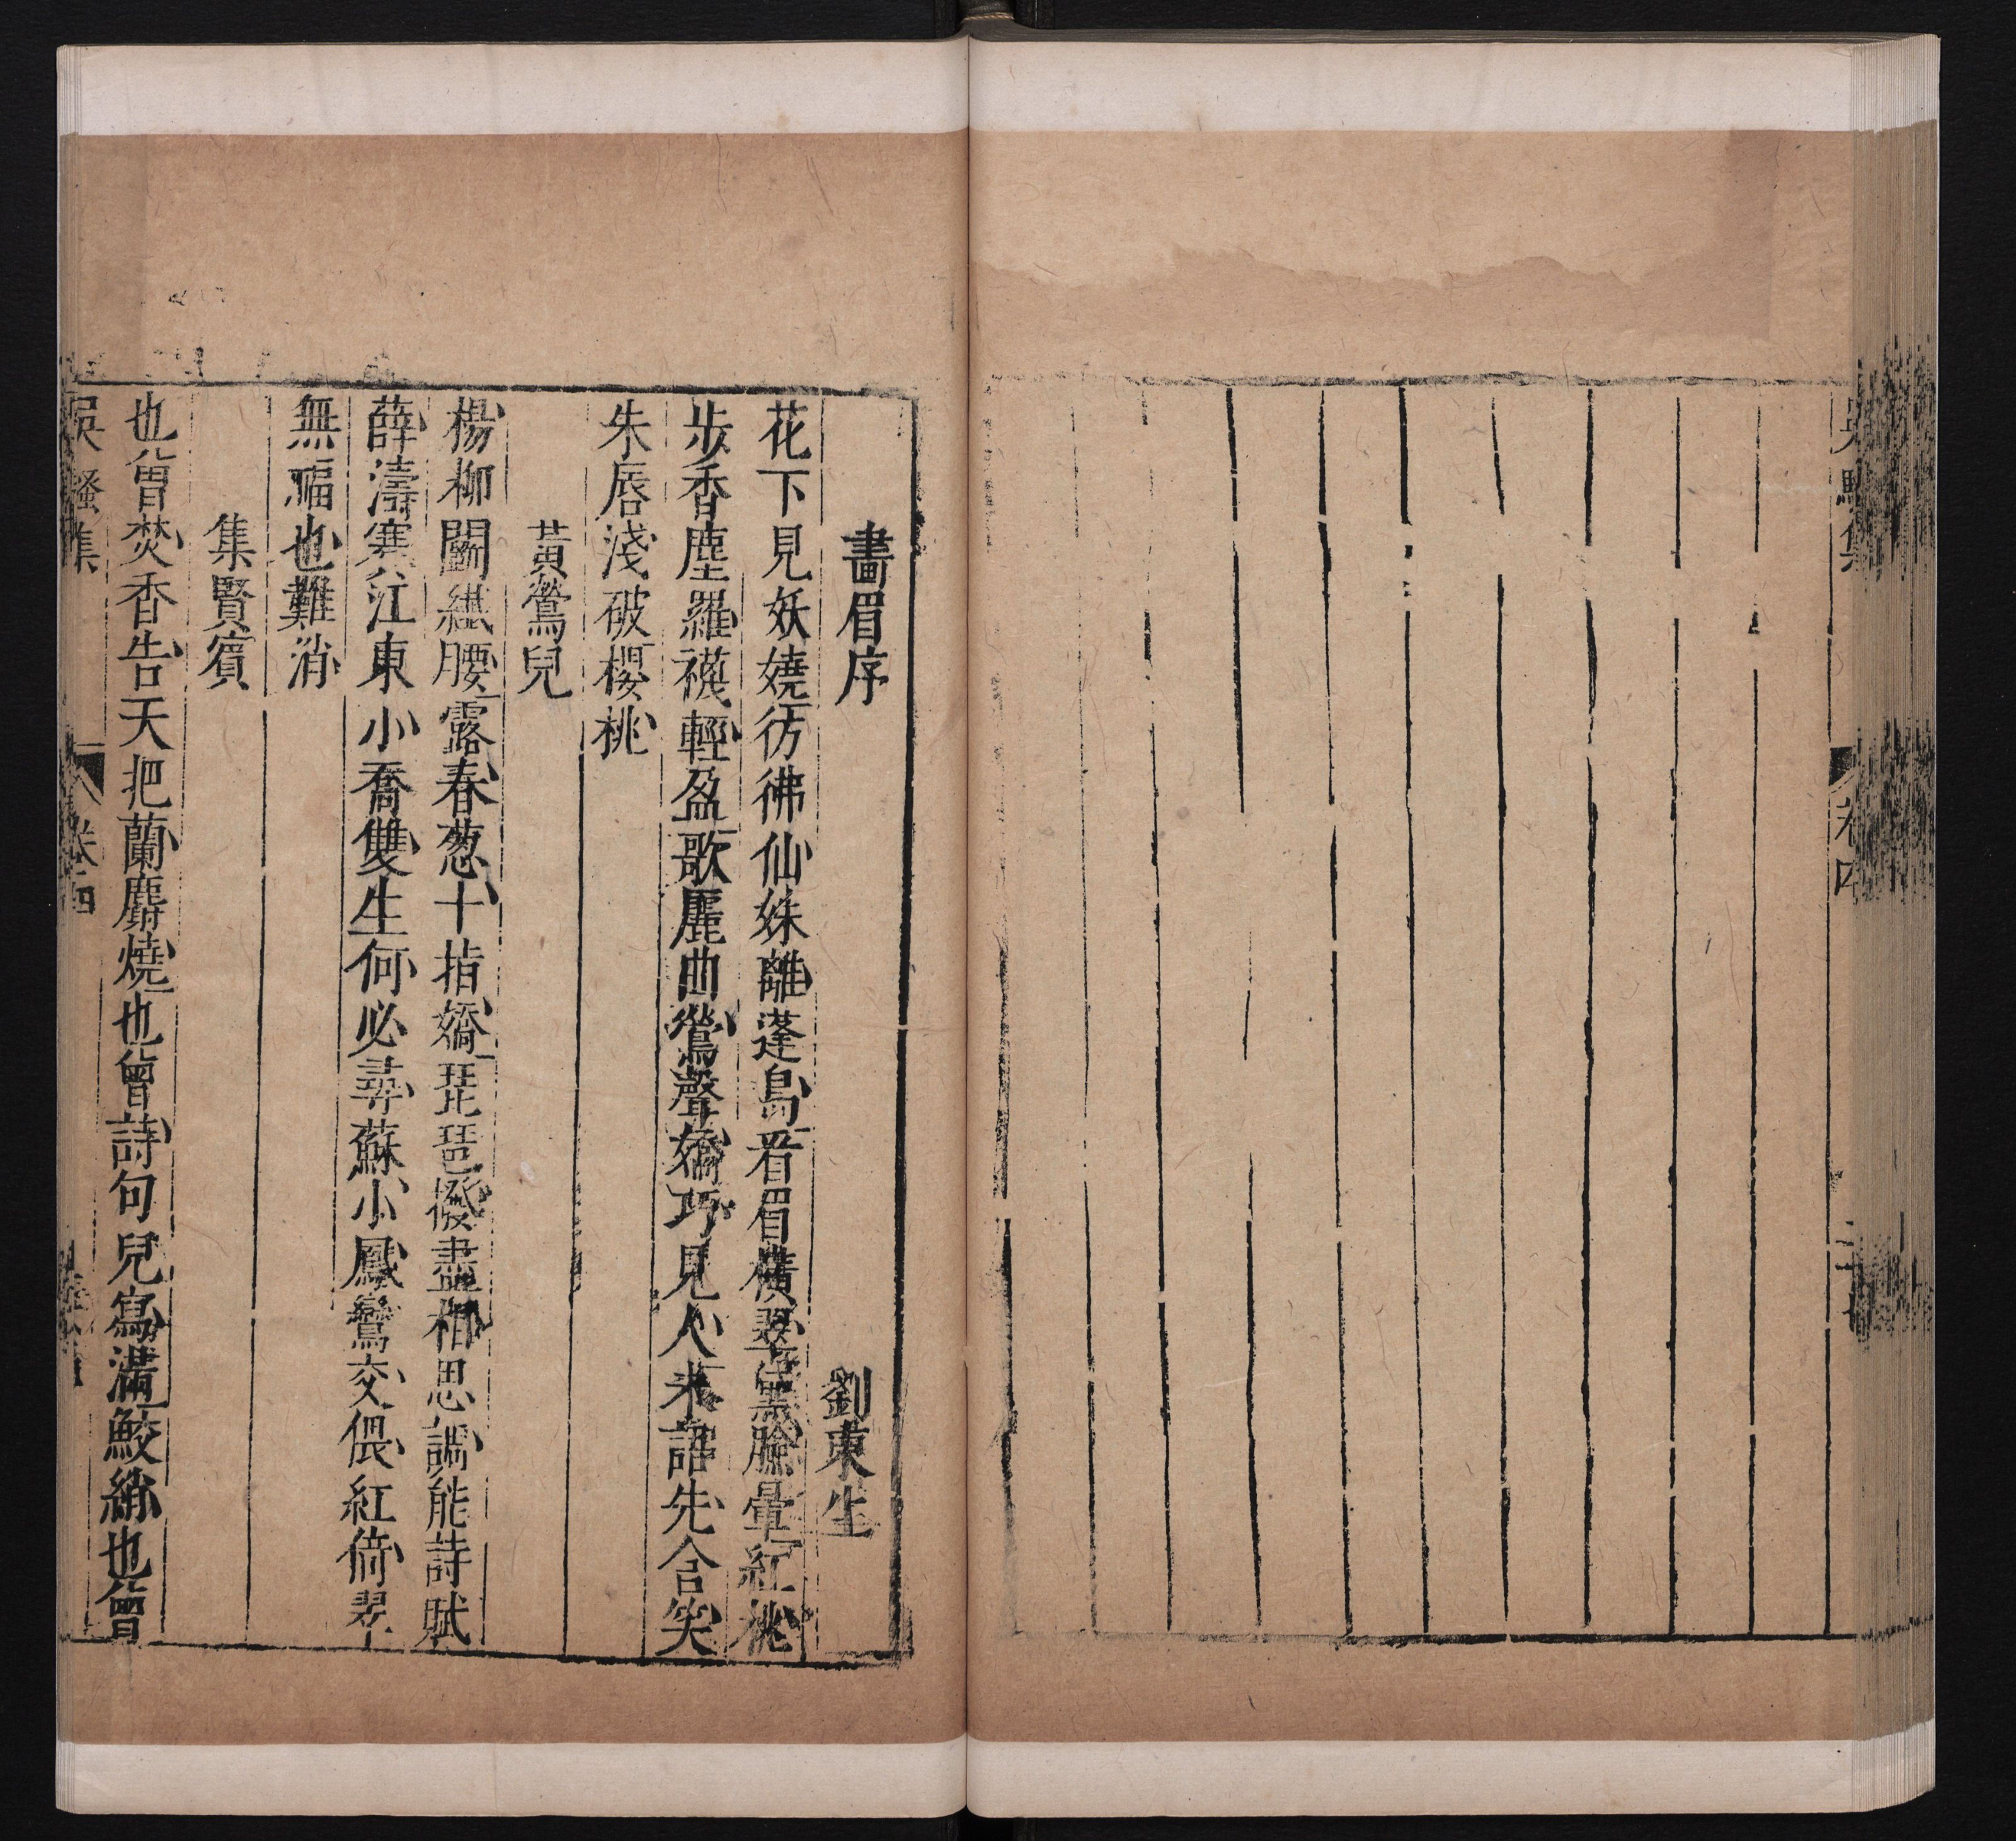 吳騷集 卷四
畫眉序 劉東生
花下見妖嬈彷彿仙姝離蓬島看眉橫翠黛臉暈紅桃
步香塵羅襪輕盈歌麗曲鶯聲嬌巧見人未語先含笑
朱唇淺破櫻桃
黃鶯兒
楊柳鬭纖腰露春葱十指嬌琵琶撥盡相思調能詩賦
薛濤寒江東小喬雙生何必尋蘇小鳳鸞交偎紅倚翠
無福也難消
集賢賓
也曾焚香告天把蘭麝燒也曾詩句兒寫滿鮫綃也曾
吳騷集 卷四